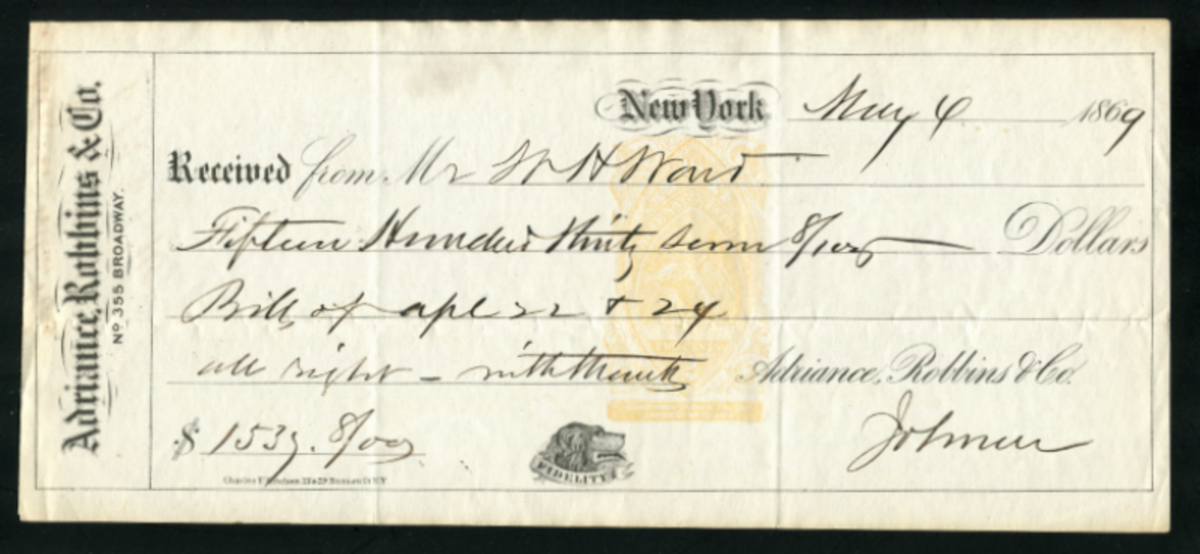 Adriance, Robbins & Co.
No 355 BROADWAY.
New York May 4 1869
Received from Mr W H Ward
Fifteen Hundred Thirty Seven 8/100 Dollars
Bills of apl 22 & 24
all right - with thanks Adriance, Robbins & Co.
$ 1537. 8/100
FIDELITY